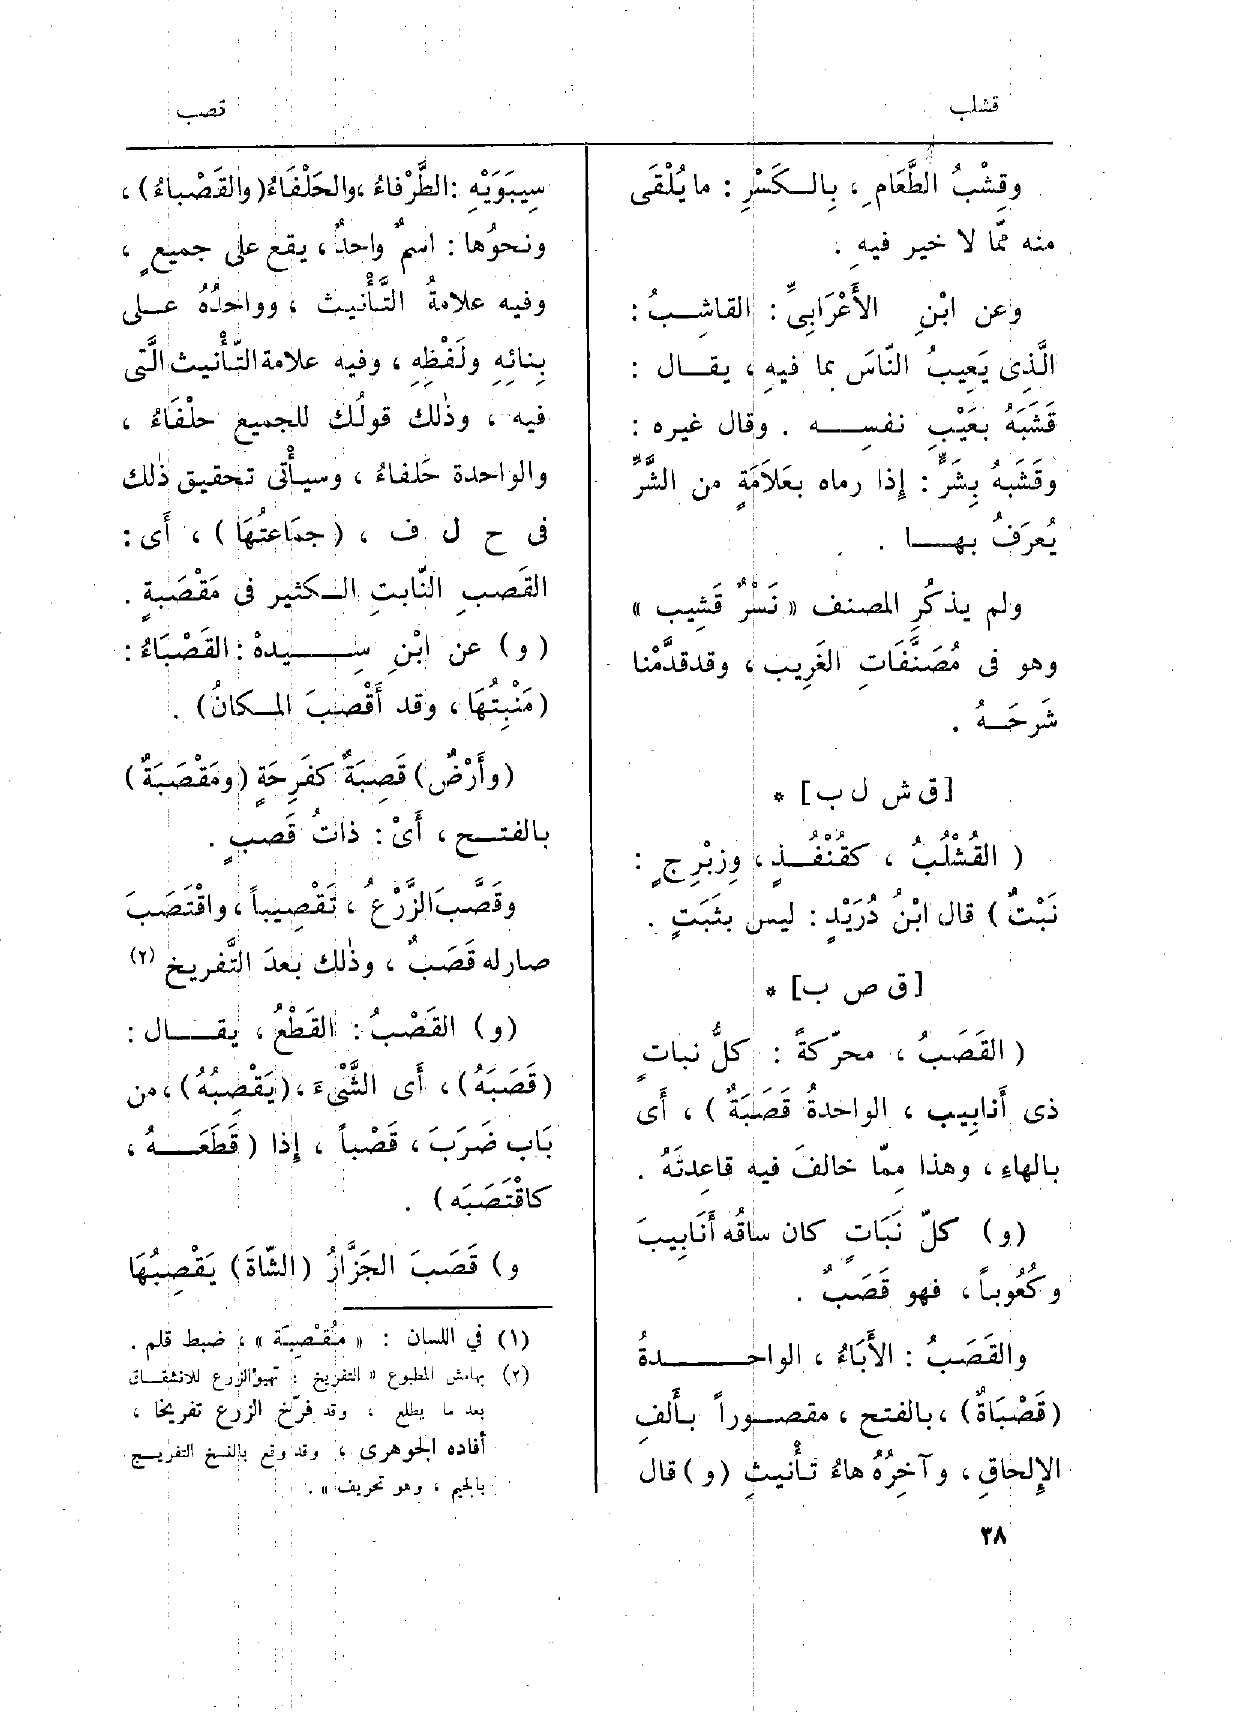 قشلب
قصب
وقِشْبُ الطَّعَامِ ، بِالكَسْرِ : ما يُلْقَى
منه ممّا لا خير فيهِ .
وعن ابْنِ الأَعْرَابِىِّ : القاشِبُ :
الَّذِى يَعِيبُ النَّاسَ بما فيهِ ، يقال :
قَشَبَهُ بعَيْبِ نفسِه . وقال غيره :
وقَشَبَهُ بِشَرٍّ : إِذا رماه بعَلاَمَةٍ من الشَّرِّ
يُعرَفُ بها .
ولم يذكُرِ المصنف « نَسْرٌ قَشِيب »
وهو فى مُصَنَّفَات الغَرِيبِ ، وقدقدَّمْنا
شَرحَهُ .
[ق ش ل ب] *
( القُشْلُبُ ، كقُنْفُذٍ ، وزِبْرِجٍ :
نَبْتٌ ) قال ابْنُ دُرَيْدٍ : ليس بثَبَتٍ .
[ق ص ب] *
( القَصَبُ ، محرّكةً : كلُّ نباتٍ
ذى أَنابِيب ، الواحدةُ قَصَبَةٌ ) ، أَى
بالهاءِ ، وهذا ممّا خالفَ فيهِ قاعدتَهُ .
(و) كلّ نَبَاتٍ كان ساقُه أَنَابِيبَ
وكُعُوباً ، فهو قَصَبٌ .
والقَصَبُ : الأَبَاءُ ، الواحدةُ
(قَصْبَاةٌ) ، بالفتحِ ، مقصوراً بأَلفِ
الإِلحاقِ ، وآخِرُهُ هاءُ تأْنيثِ (و) قال
سِيبَوَيْهِ : الطَّرْفاءُ ، والحَلْفَاءُ (والقَصْباءُ) ،
ونحوُها : اسمٌ واحدٌ ، يقع على جميعٍ ،
وفيه علامةُ التَّأْنيث ، وواحدُهُ على
بنائِهِ ولَفْظِهِ ، وفيه علامة التّأْنيث الَّتى
فيه ، وذٰلك قولُك للجميع حلْفَاءُ ،
والواحدة حَلفاءُ ، وسيأْتى تحقيق ذٰلك
فى ح ل ف ، (جمَاعتُهَا) ، أَى :
القَصبِ النّابتِ الكثير فى مَقْصَبةٍ .
(و) عن ابْنِ سِيدهْ : القَصْبَاءُ :
(مَنْبِتُهَا ، وقد أَقْصبَ المكانُ) .
(وأَرْضٌ) قَصِبَةٌ كفَرِحَةٍ (ومَقْصَبَةٌ)
بالفتح ، أَىْ : ذاتُ قَصبٍ .
وقَصَّبَ الزَّرْعُ ، تَقْصِيباً ، واقْتَصَبَ
صار له قَصَبٌ ، وذٰلك بعدَ التَّفريخ (٢)
(و) القَصْبُ : القَطْعُ ، يقال :
(قَصَبَهُ) ، أَى الشَّىْءَ ، (يَقْصِبُهُ) ، من
بَاب ضَرَبَ ، قَصْباً ، إِذا (قَطَعَهُ ،
كاقْتَصَبَه) .
و) قَصَبَ الجَزَّارُ (الشّاةَ) يَقْصِبُهَا
(١) في اللسان : « مُقْصِبَة » ، ضبط قلم .
(٢) بهامش المطبوع « التفريخ : تهيؤالزرع للانشقاق
بعد ما يطلع ، وقد فرّخ الزرع تفريخا ،
أفاده الجوهرى ، وقد وقع بالنسخ التفريج
بالجيم ، وهو تحريف » .
٣٨